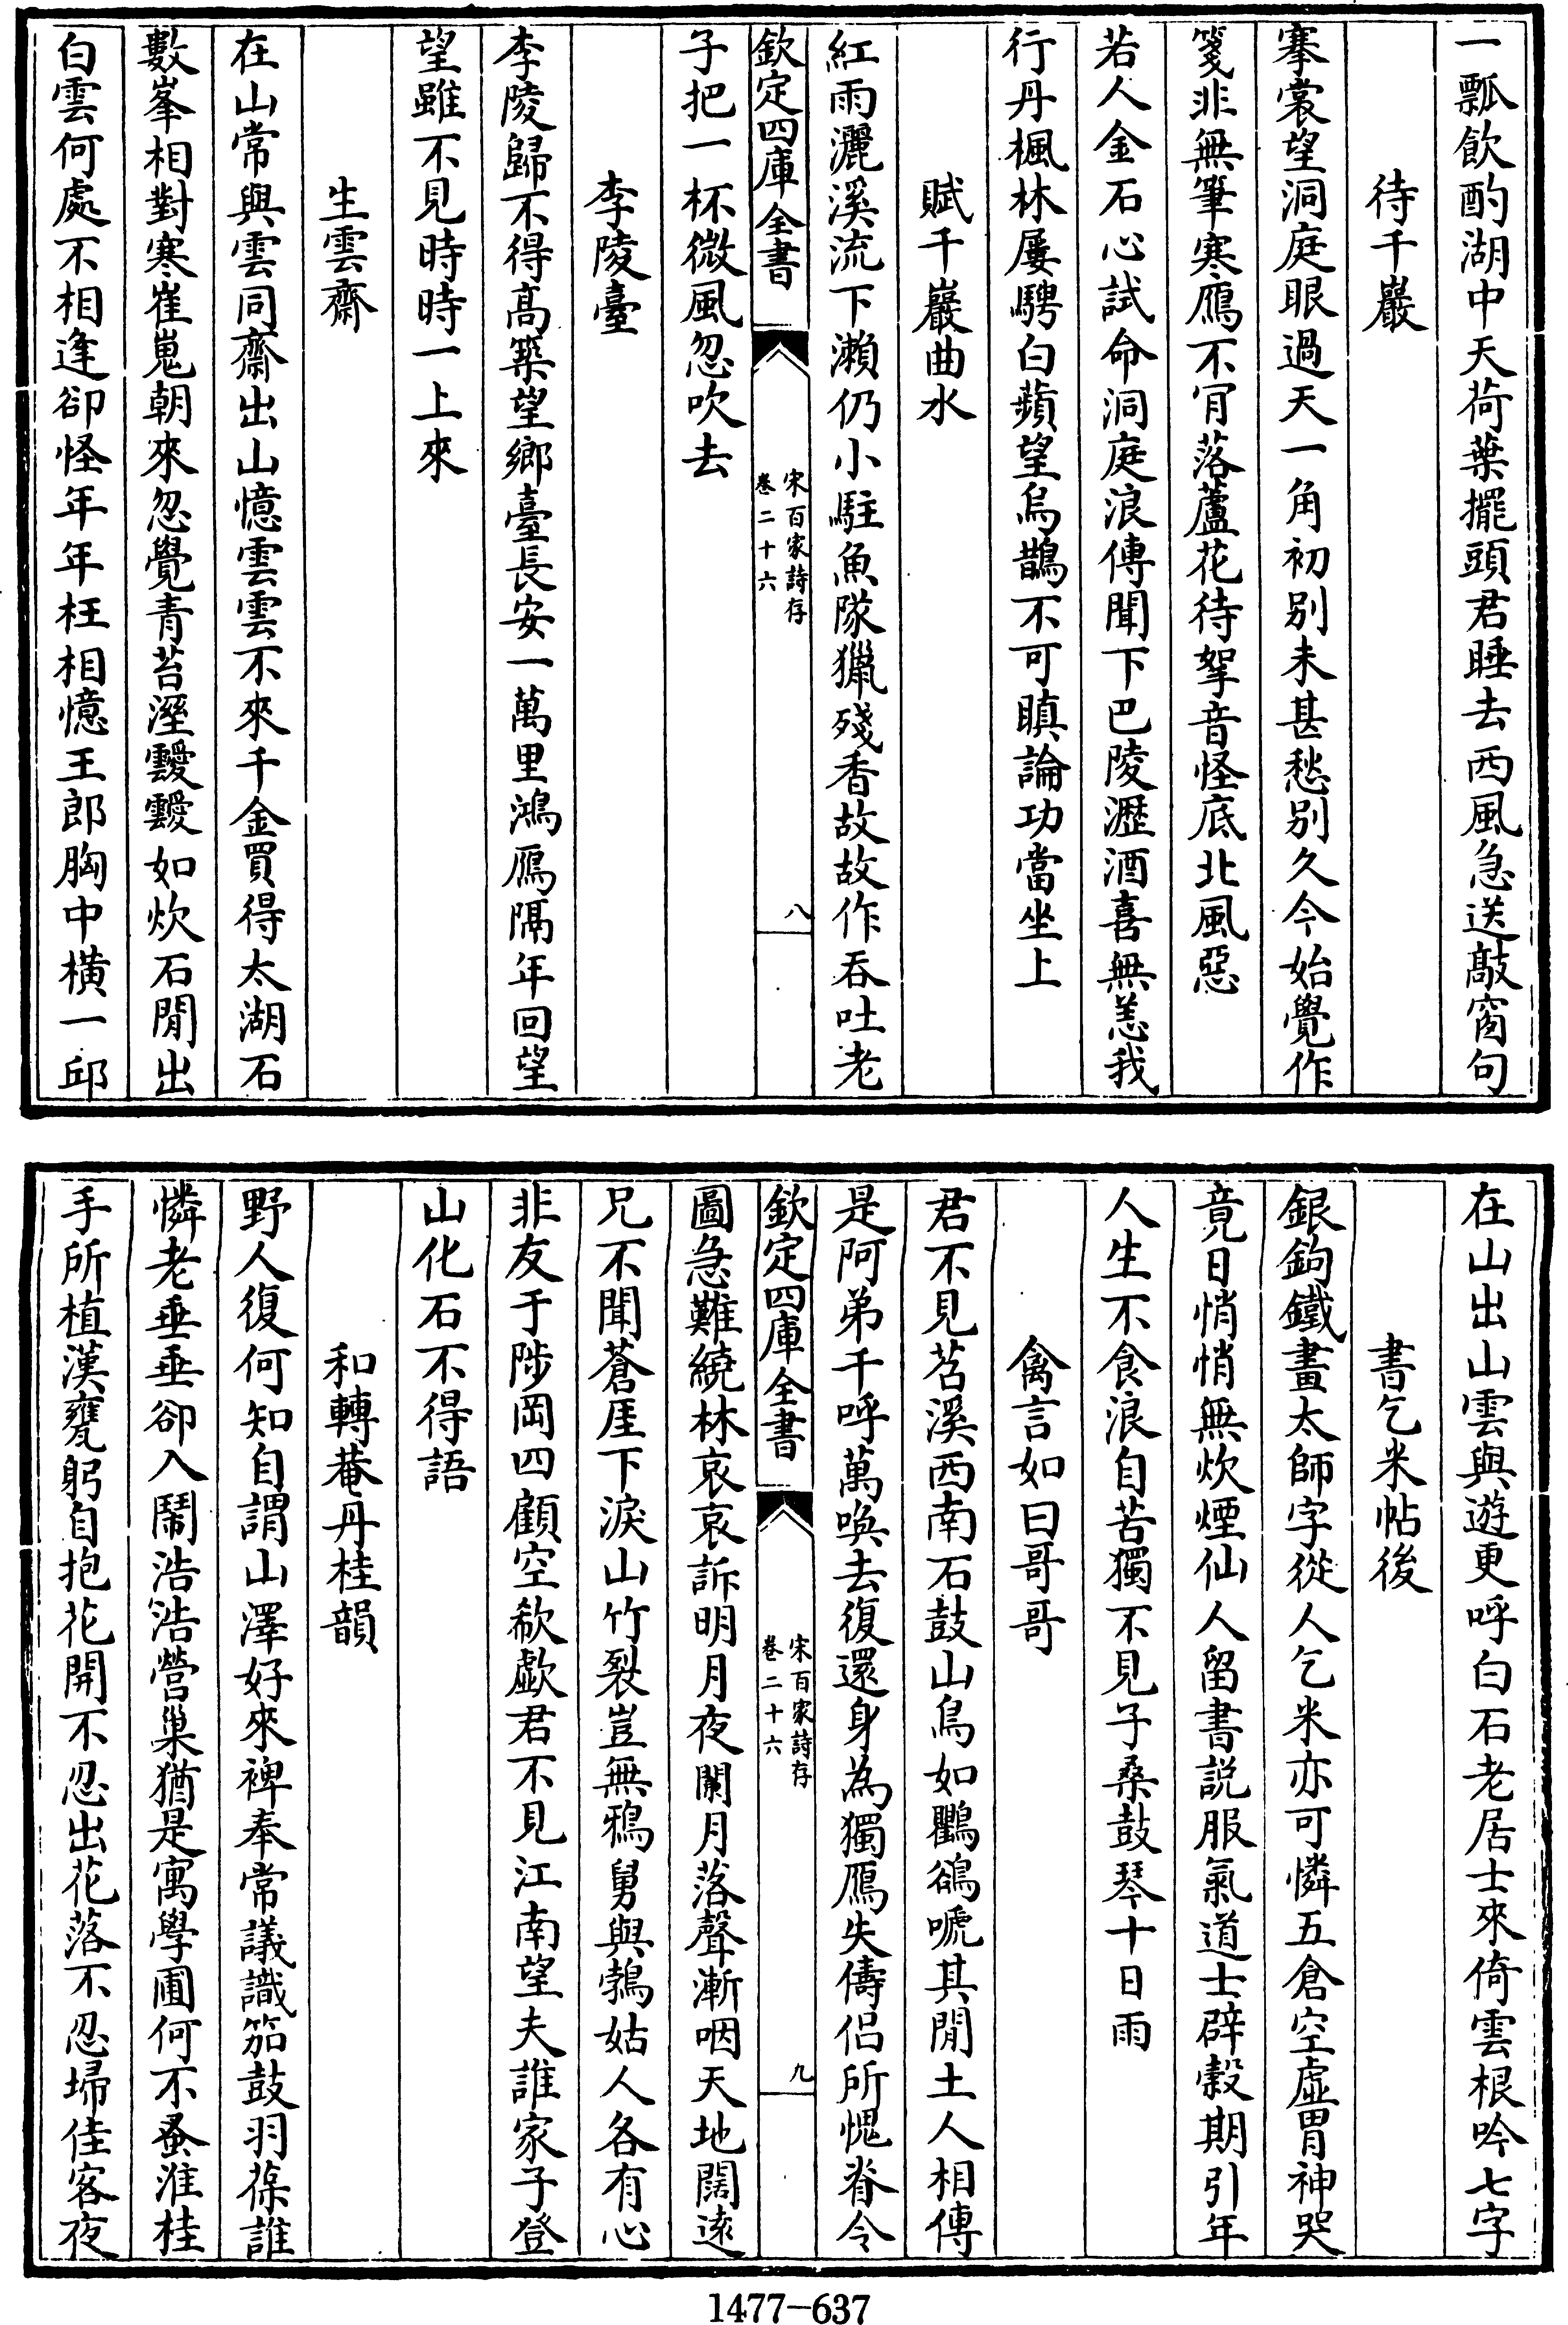 一瓢飲酌湖中天荷葉擺頭君睡去西風急送敲窗句
待千巖
搴裳望洞庭眼過天一角初别未甚愁别久今始覺作
箋非無筆寒鴈不肎落蘆花待挐音怪底北風惡
若人金石心試命洞庭浪傳聞下巴陵瀝酒喜無恙我
行丹楓林屢騁白蘋望烏鵲不可瞋論功當坐上
賦千巖曲水
紅雨灑溪流下瀨仍小駐魚隊獵殘香故故作吞吐老
欽定四庫全書
宋百家詩存
卷二十六
八
子把一杯微風忽吹去
李陵臺
李陵歸不得高築望鄉臺長安一萬里鴻鴈隔年回望
望雖不見時時一上來
生雲齋
在山常與雲同齋出山憶雲雲不來千金買得太湖石
數峯相對寒崔嵬朝來忽覺青苔溼靉靉如炊石閒出
白雲何處不相逢卻怪年年枉相憶王郎胸中橫一邱
在山出山雲與遊更呼白石老居士來倚雲根吟七字
書乞米帖後
銀鉤鐵畫太師字從人乞米亦可憐五倉空虛胃神哭
竟日悄悄無炊煙仙人留書説服氣道士辟穀期引年
人生不食浪自苦獨不見子桑鼓琴十日雨
禽言如曰哥哥
君不見苕溪西南石鼓山鳥如鸜鵒嗁其閒土人相傳
是阿弟千呼萬喚去復還身為獨鴈失儔侶所愧脊令
欽定四庫全書
宋百家詩存
卷二十六
九
圖急難繞林哀哀訴明月夜闌月落聲漸咽天地闊遠
兄不聞蒼厓下淚山竹裂豈無鴉舅與鵓姑人各有心
非友于陟岡四顧空欷歔君不見江南望夫誰家子登
山化石不得語
和轉菴丹桂韻
野人復何知自謂山澤好來裨奉常議識笳鼓羽葆誰
憐老垂垂卻入鬧浩浩營巢猶是寓學圃何不蚤淮桂
手所植漢甕躬自抱花開不忍出花落不忍埽佳客夜
1477-637